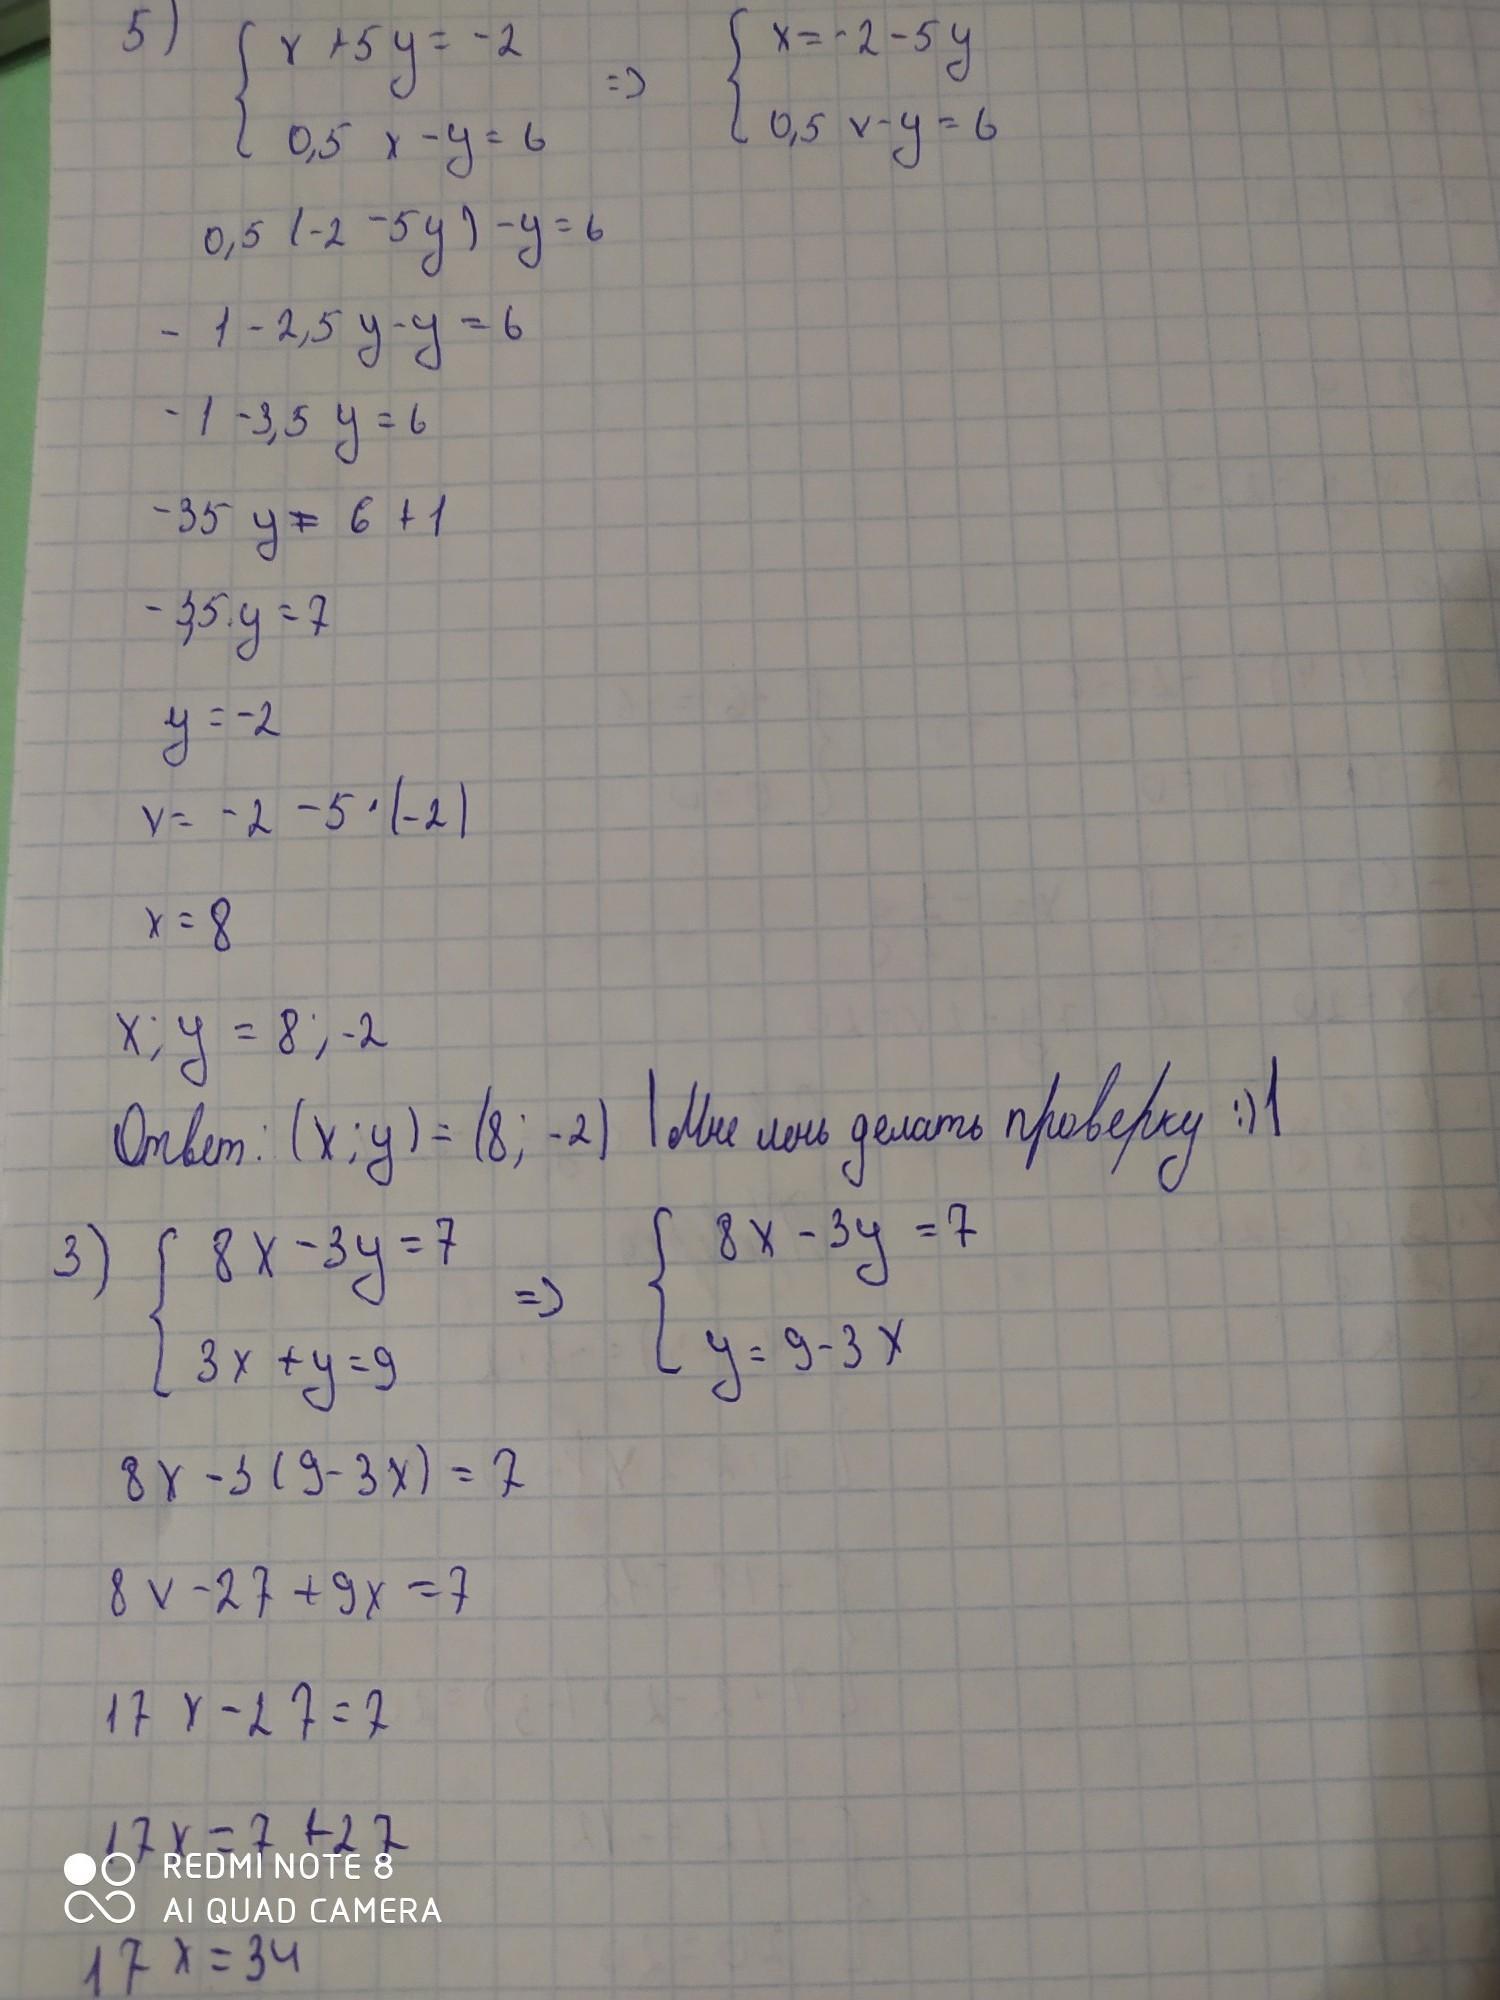 5) { x + 5y = -2 => { x = -2 - 5y
0,5 x - y = 6 0,5 x - y = 6
0,5 (-2 - 5y) - y = 6
- 1 - 2,5 y - y = 6
- 1 - 3,5 y = 6
- 35 y = 6 + 1
- 3,5 y = 7
y = -2
x = -2 - 5 · (-2)
x = 8
x; y = 8; -2
Ответ: (x; y) = (8; -2) | Мне лень делать проверку :) |
3) { 8x - 3y = 7 => { 8x - 3y = 7
3x + y = 9 y = 9 - 3x
8x - 3 (9 - 3x) = 7
8x - 27 + 9x = 7
17 x - 27 = 7
17 x = 7 + 27
REDMI NOTE 8
AI QUAD CAMERA
17 x = 34